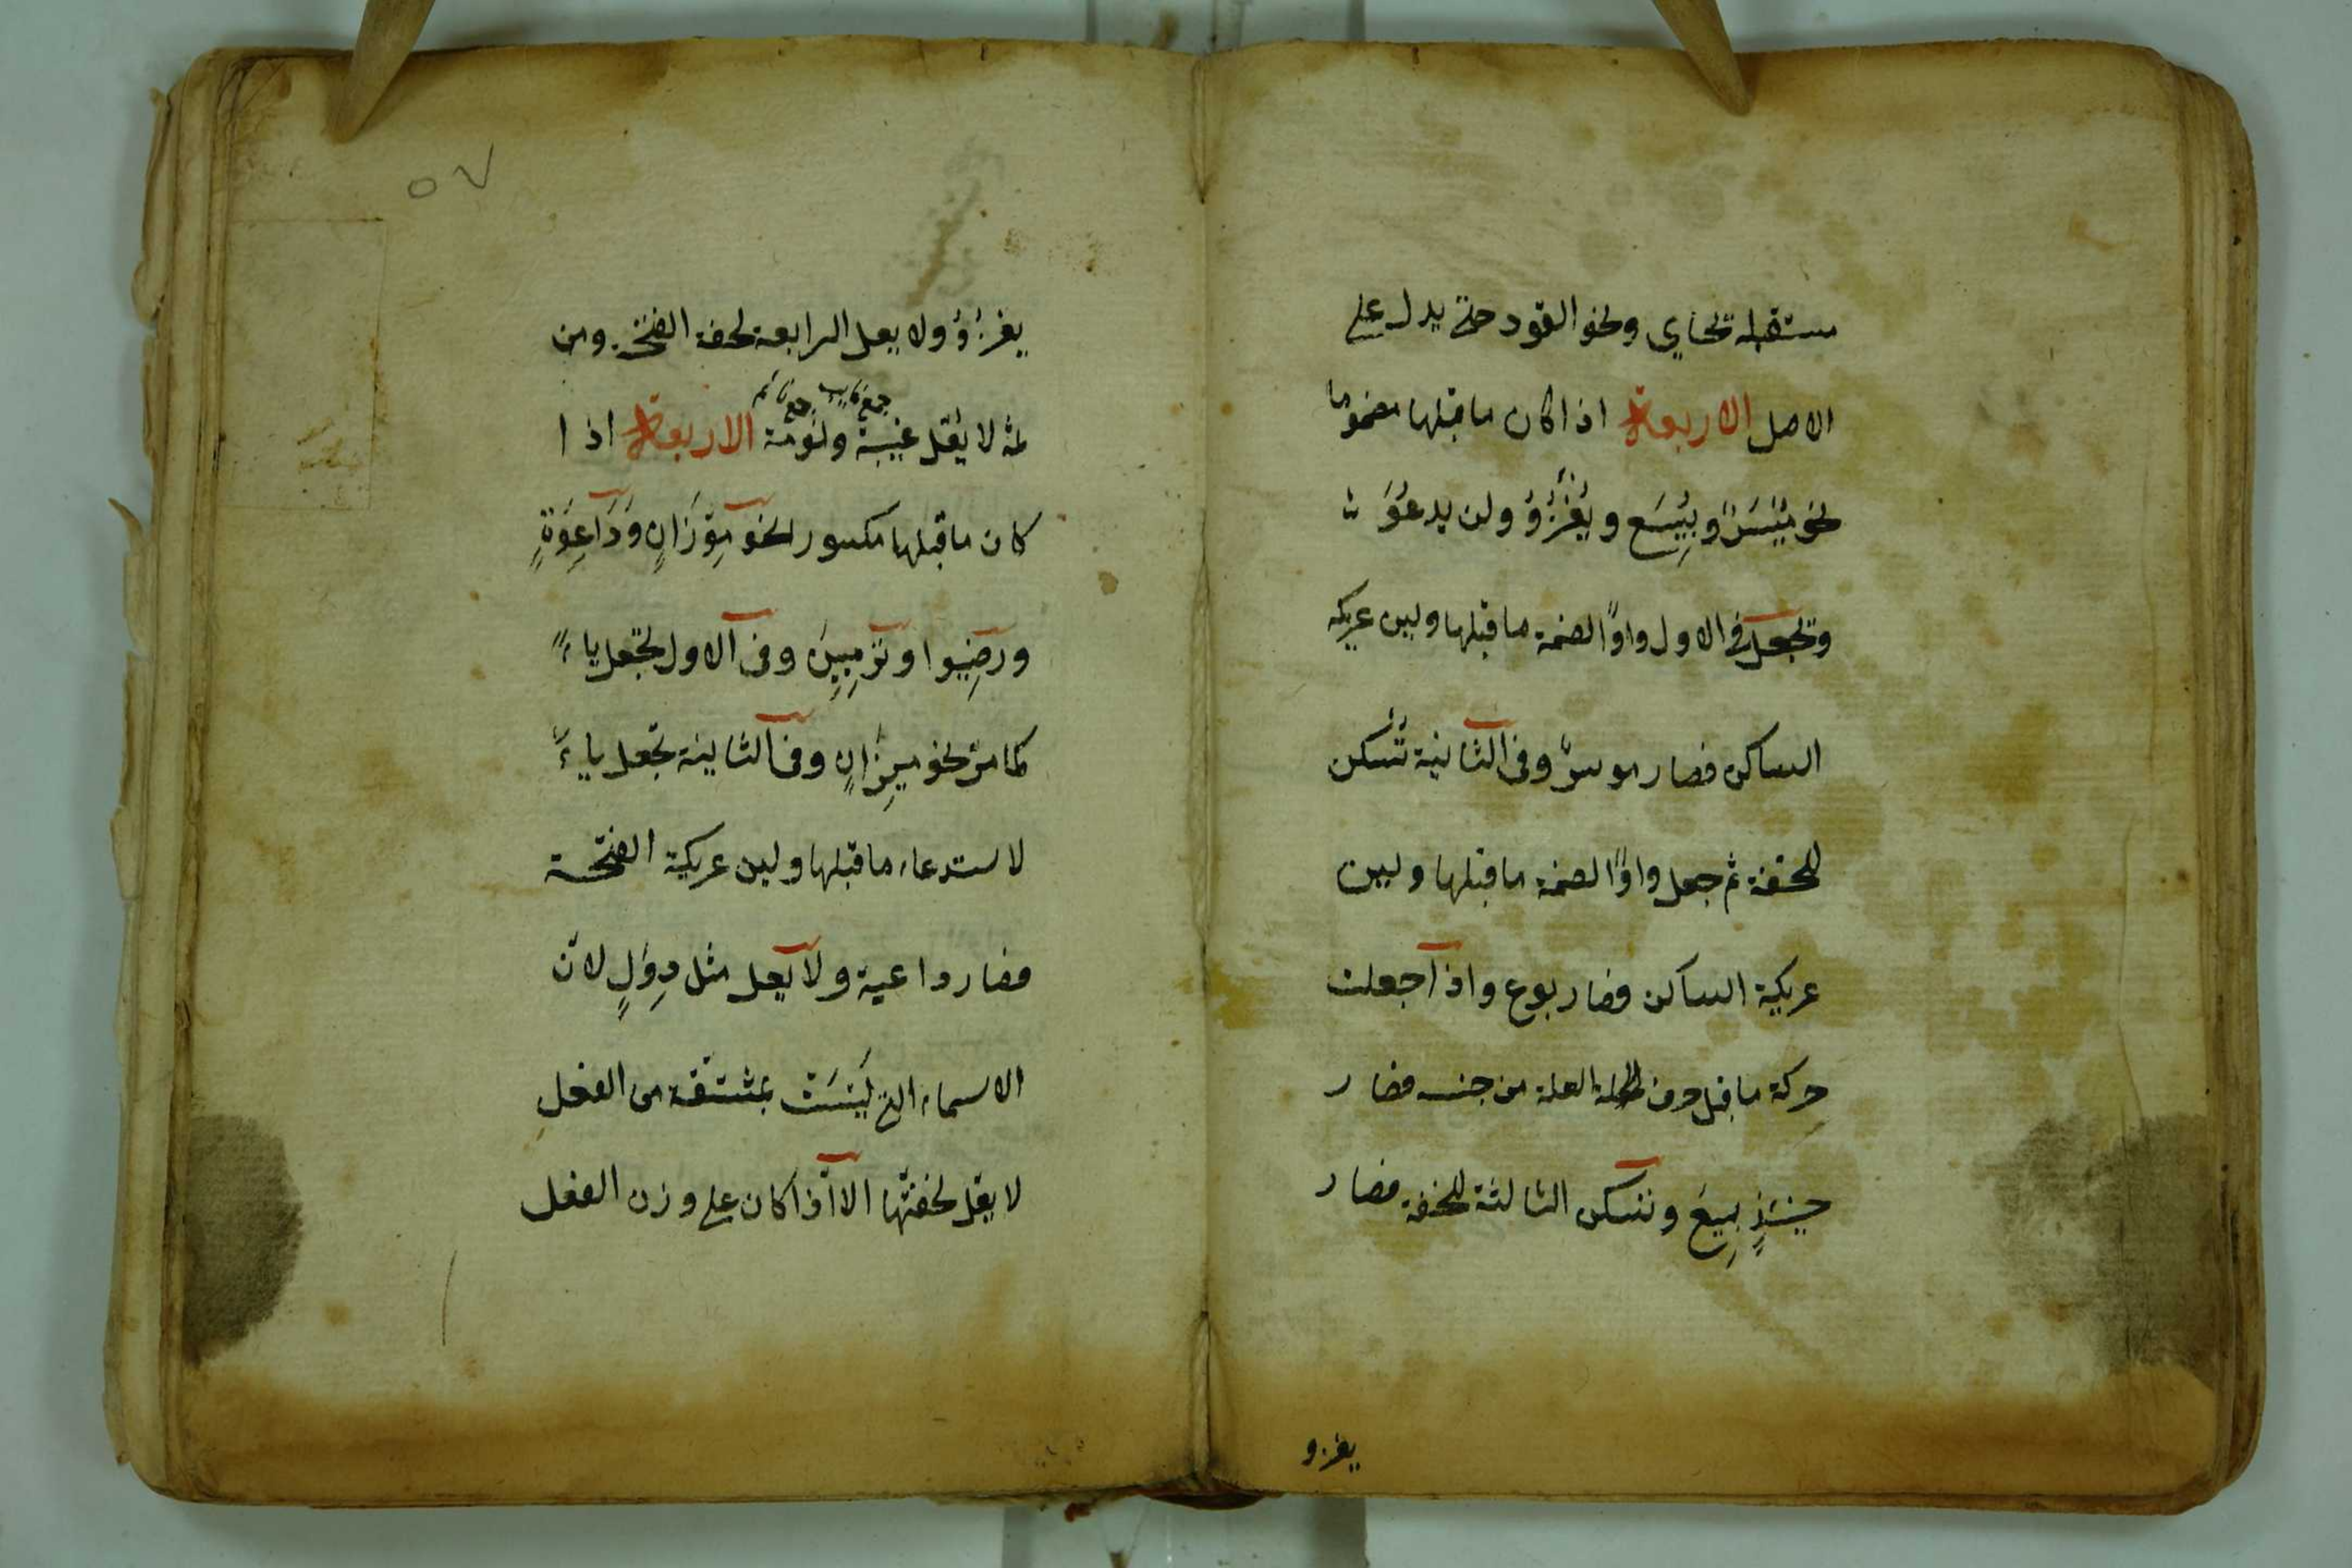 مستقبله تحاي ونحو القود حتى يدل على
الاصل الاربعة اذا كان ما قبلها مضموما
نحو مُيْسَرٌ وبُيِعَ ويَغْزُوُ ولن يدعُوَ ث
وتجعل فى الاول واوًا لضمة ما قبلها ولين عريكة
الساكن فصار موسرٌ وفى الثانية تُسكن
للخفة ثم جعل واوًا لضمة ما قبلها ولين
عريكة الساكن فصار بوع واذا جعلت
حركة ما قبل حرف العلة من جنسه فصار
حينئذٍ بِيعَ وتسكن الثالثة للخفة فصار
يغزو
٥٧
يغزُوُ ولا يعل الرابعة لخفة الفتحة ومن
ثمة لا يُعَل غَيَبَة ونُوَمَة الاربعة اذا
جمع غايب جمع نائم
كان ما قبلها مكسورا نحو مِوْزَانٍ ودَاعِوَةٍ
ورضِيُوا وتَرْمِيِينَ وفى الاول تجعل ياءً
كما مرّ نحو مِيزانٍ وفى الثانية تجعل ياءً
لاستدعاء ما قبلها ولين عريكة الفتحة
فصار داعية ولا يعل مثل دِوَلٍ لان
الاسماء التى لَيْسَتْ بمشتقة من الفعلِ
لا يعل لخفتها الا اذا كان على وزن الفعل